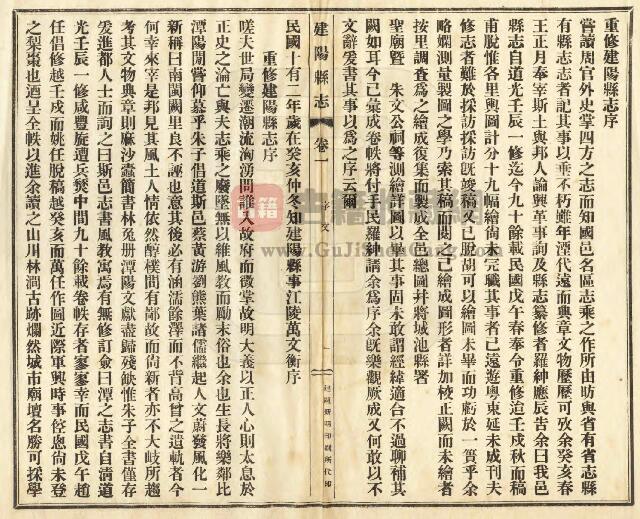 重修建陽縣志序
嘗讀周官外史掌四方之志而知國邑名區志乘之作所由昉與省有省志縣
有縣志志者記其事以垂不朽雖年湮代遠而典章文物歷歷可攷余癸亥春
王正月奉宰斯土與邦人論興革事詢及縣志纂修者羅紳應辰告余曰我邑
縣志自道光壬辰一修迄今九十餘載民國戊午春奉令重修遘壬戌秋而稿
甫脫惟各里輿圖計分十九幅繪尚未完職其事者已遠遊粵東延未成刊夫
修志者難於採訪採訪旣竣稿又已脫胡可以繪圖未畢而功虧於一簣乎余
略嫻測量製圖之學乃索其稿而閱之已繪成圖形者詳加校正闕而未繪者
按里調查為之繪成復集而製為全邑總圖幷將城池縣署
聖廟暨　朱文公祠等測繪詳圖以畢其事固未敢謂經緯適合不過聊補其
闕如耳今已彙成卷帙將付手民羅紳請余為序余旣樂觀厥成又何敢以不
文辭爰書其事以為之序云爾
民國十有二年歲在癸亥仲冬知建陽縣事江陵萬文衡序
建陽縣志
卷一
序文
一
重修建陽縣志序
嗟夫世局變遷潮流洶湧問誰入故府而徵掌故明大義以正人心則太息於
正史之淪亡與夫志乘之廢墜無以維風教而勵末俗也余也生長將樂鄰比
潭陽閒嘗仰慕乎朱子倡道斯邑蔡黃游劉熊葉諸儒繼起人文蔚發風化一
新稱曰南閩闕里良不誣也意其後必有涵濡餘澤而不背高曾之遺軌者今
何幸來宰是邦見其風土人情依然醇樸間有鄙故而尚新者亦不大岐所趨
考其文物典章則麻沙蠹簡書林兔册潭陽文獻盡歸殘缺惟朱子全書僅存
爰進都人士而詢之曰斯邑志書風教萬為有無修訂僉曰潭之志書自清道
光壬辰一修咸豐旋遭兵燹中間九十餘載卷帙存者寥寥幸而民國戊午趙
任倡修越壬戌而姚任脫稿越癸亥而萬任作圖近際軍興時事倥傯尚未登
之梨棗也迺呈全帙以進余讀之山川林澗古跡爛然城市廟壇名勝可採學
古籍收藏網
www.GuJiShouCang.com